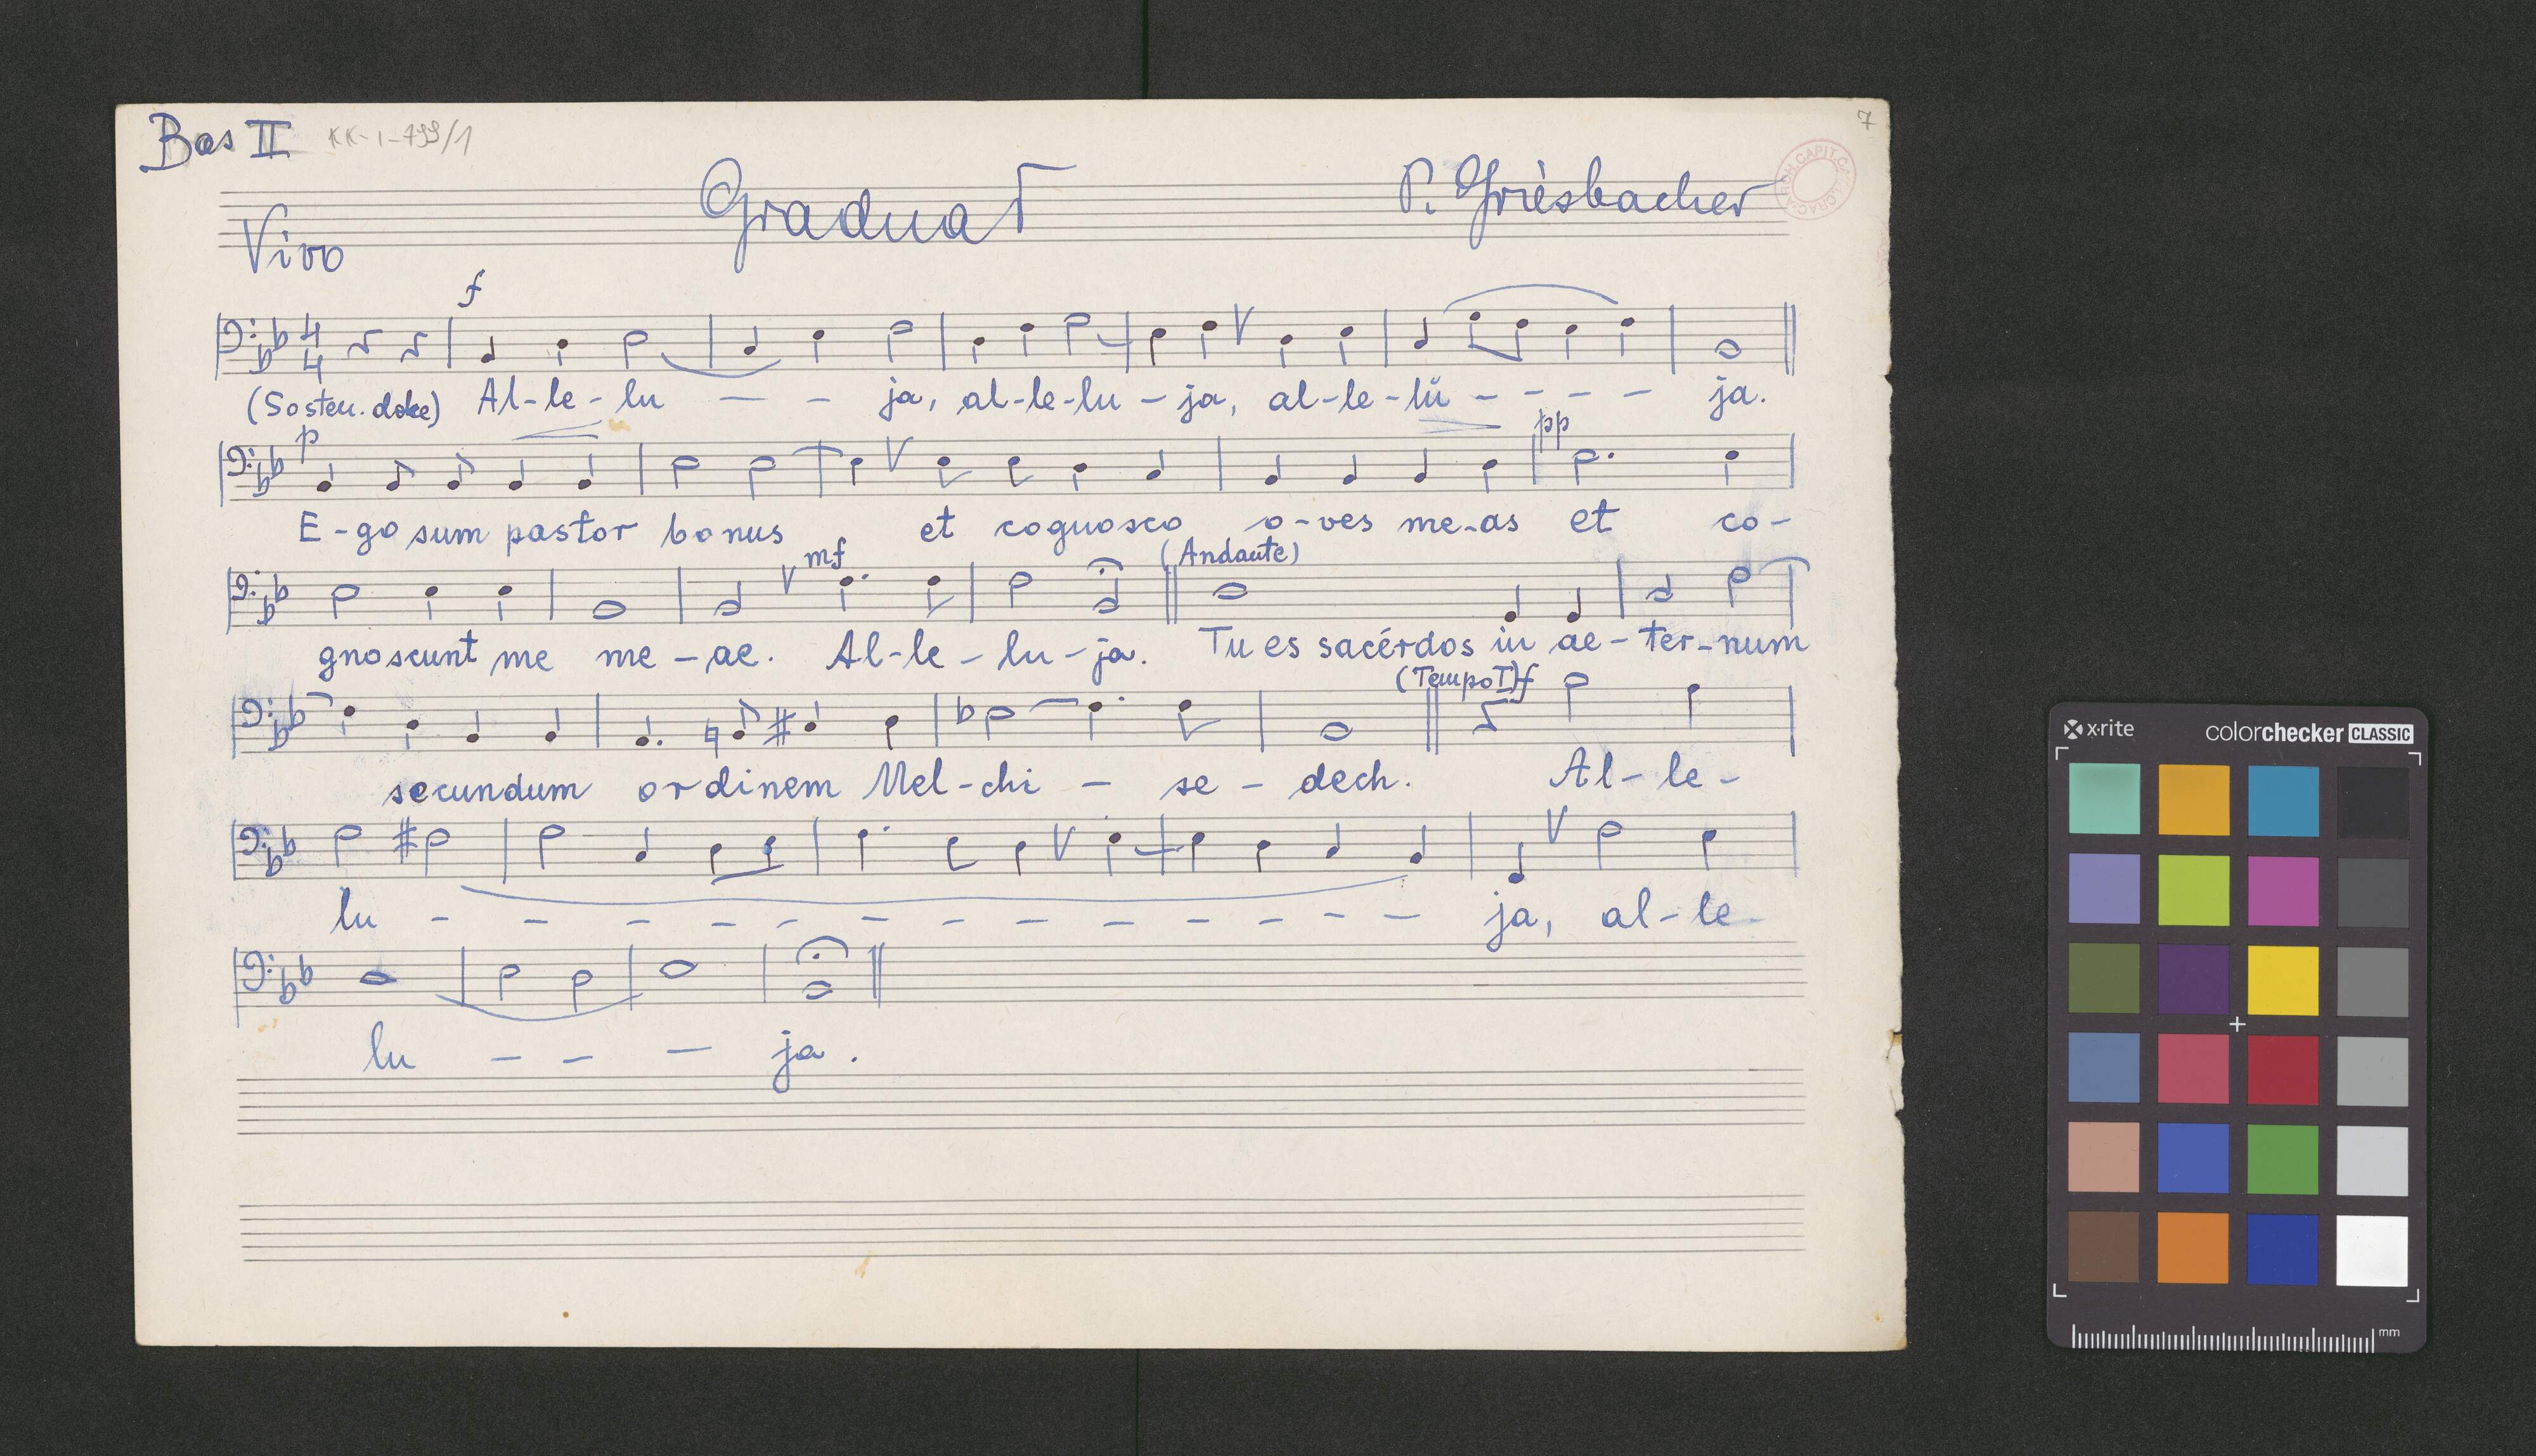 Bas II KK-I-499/1 7
Gradual P. Griesbacher
Vivo
f
4
4
(Sosten. dolce) Al-le-lu — - ja, al-le-lu-ja, al-le-lu - - - - ja.
p pp
E-go sum pastor bonus et cognosco o-ves me-as et co-
mf (Andante)
gnoscunt me me-ae. Al-le-lu-ja. Tu es sacérdos in ae-ter-num
(Tempo I) f
secundum ordinem Mel-chi - se - dech. Al-le-
lu - - - - - - - - - - - - - ja, al-le
lu - - — ja.
x·rite colorchecker CLASSIC
mm